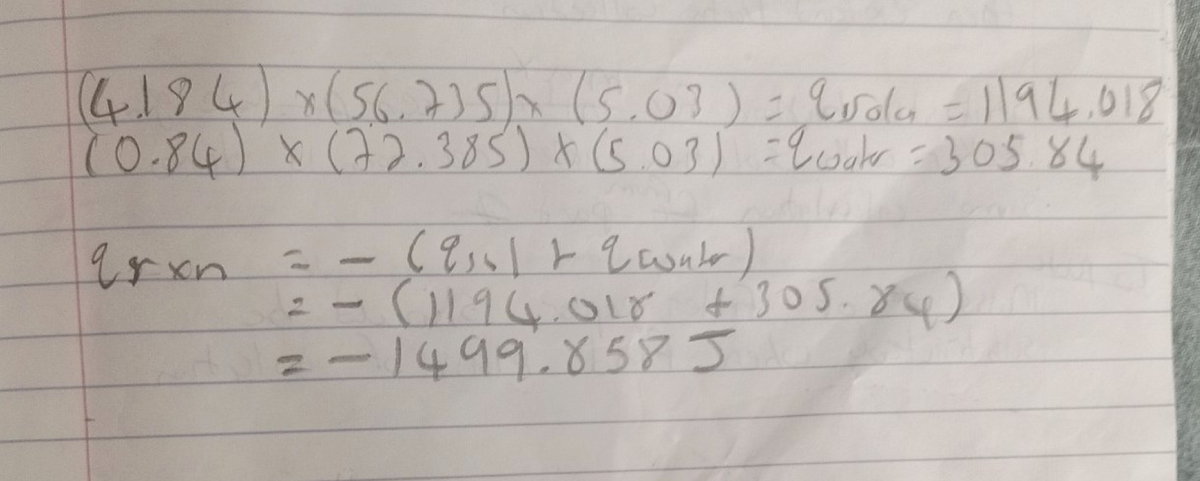 (4.184) × (56.735) × (5.03) = qsoln = 1194.018
(0.84) × (72.385) × (5.03) = qwater = 305.84
qrxn = - (qsol + qwater)
= - (1194.018 + 305.84)
= - 1499.858 J